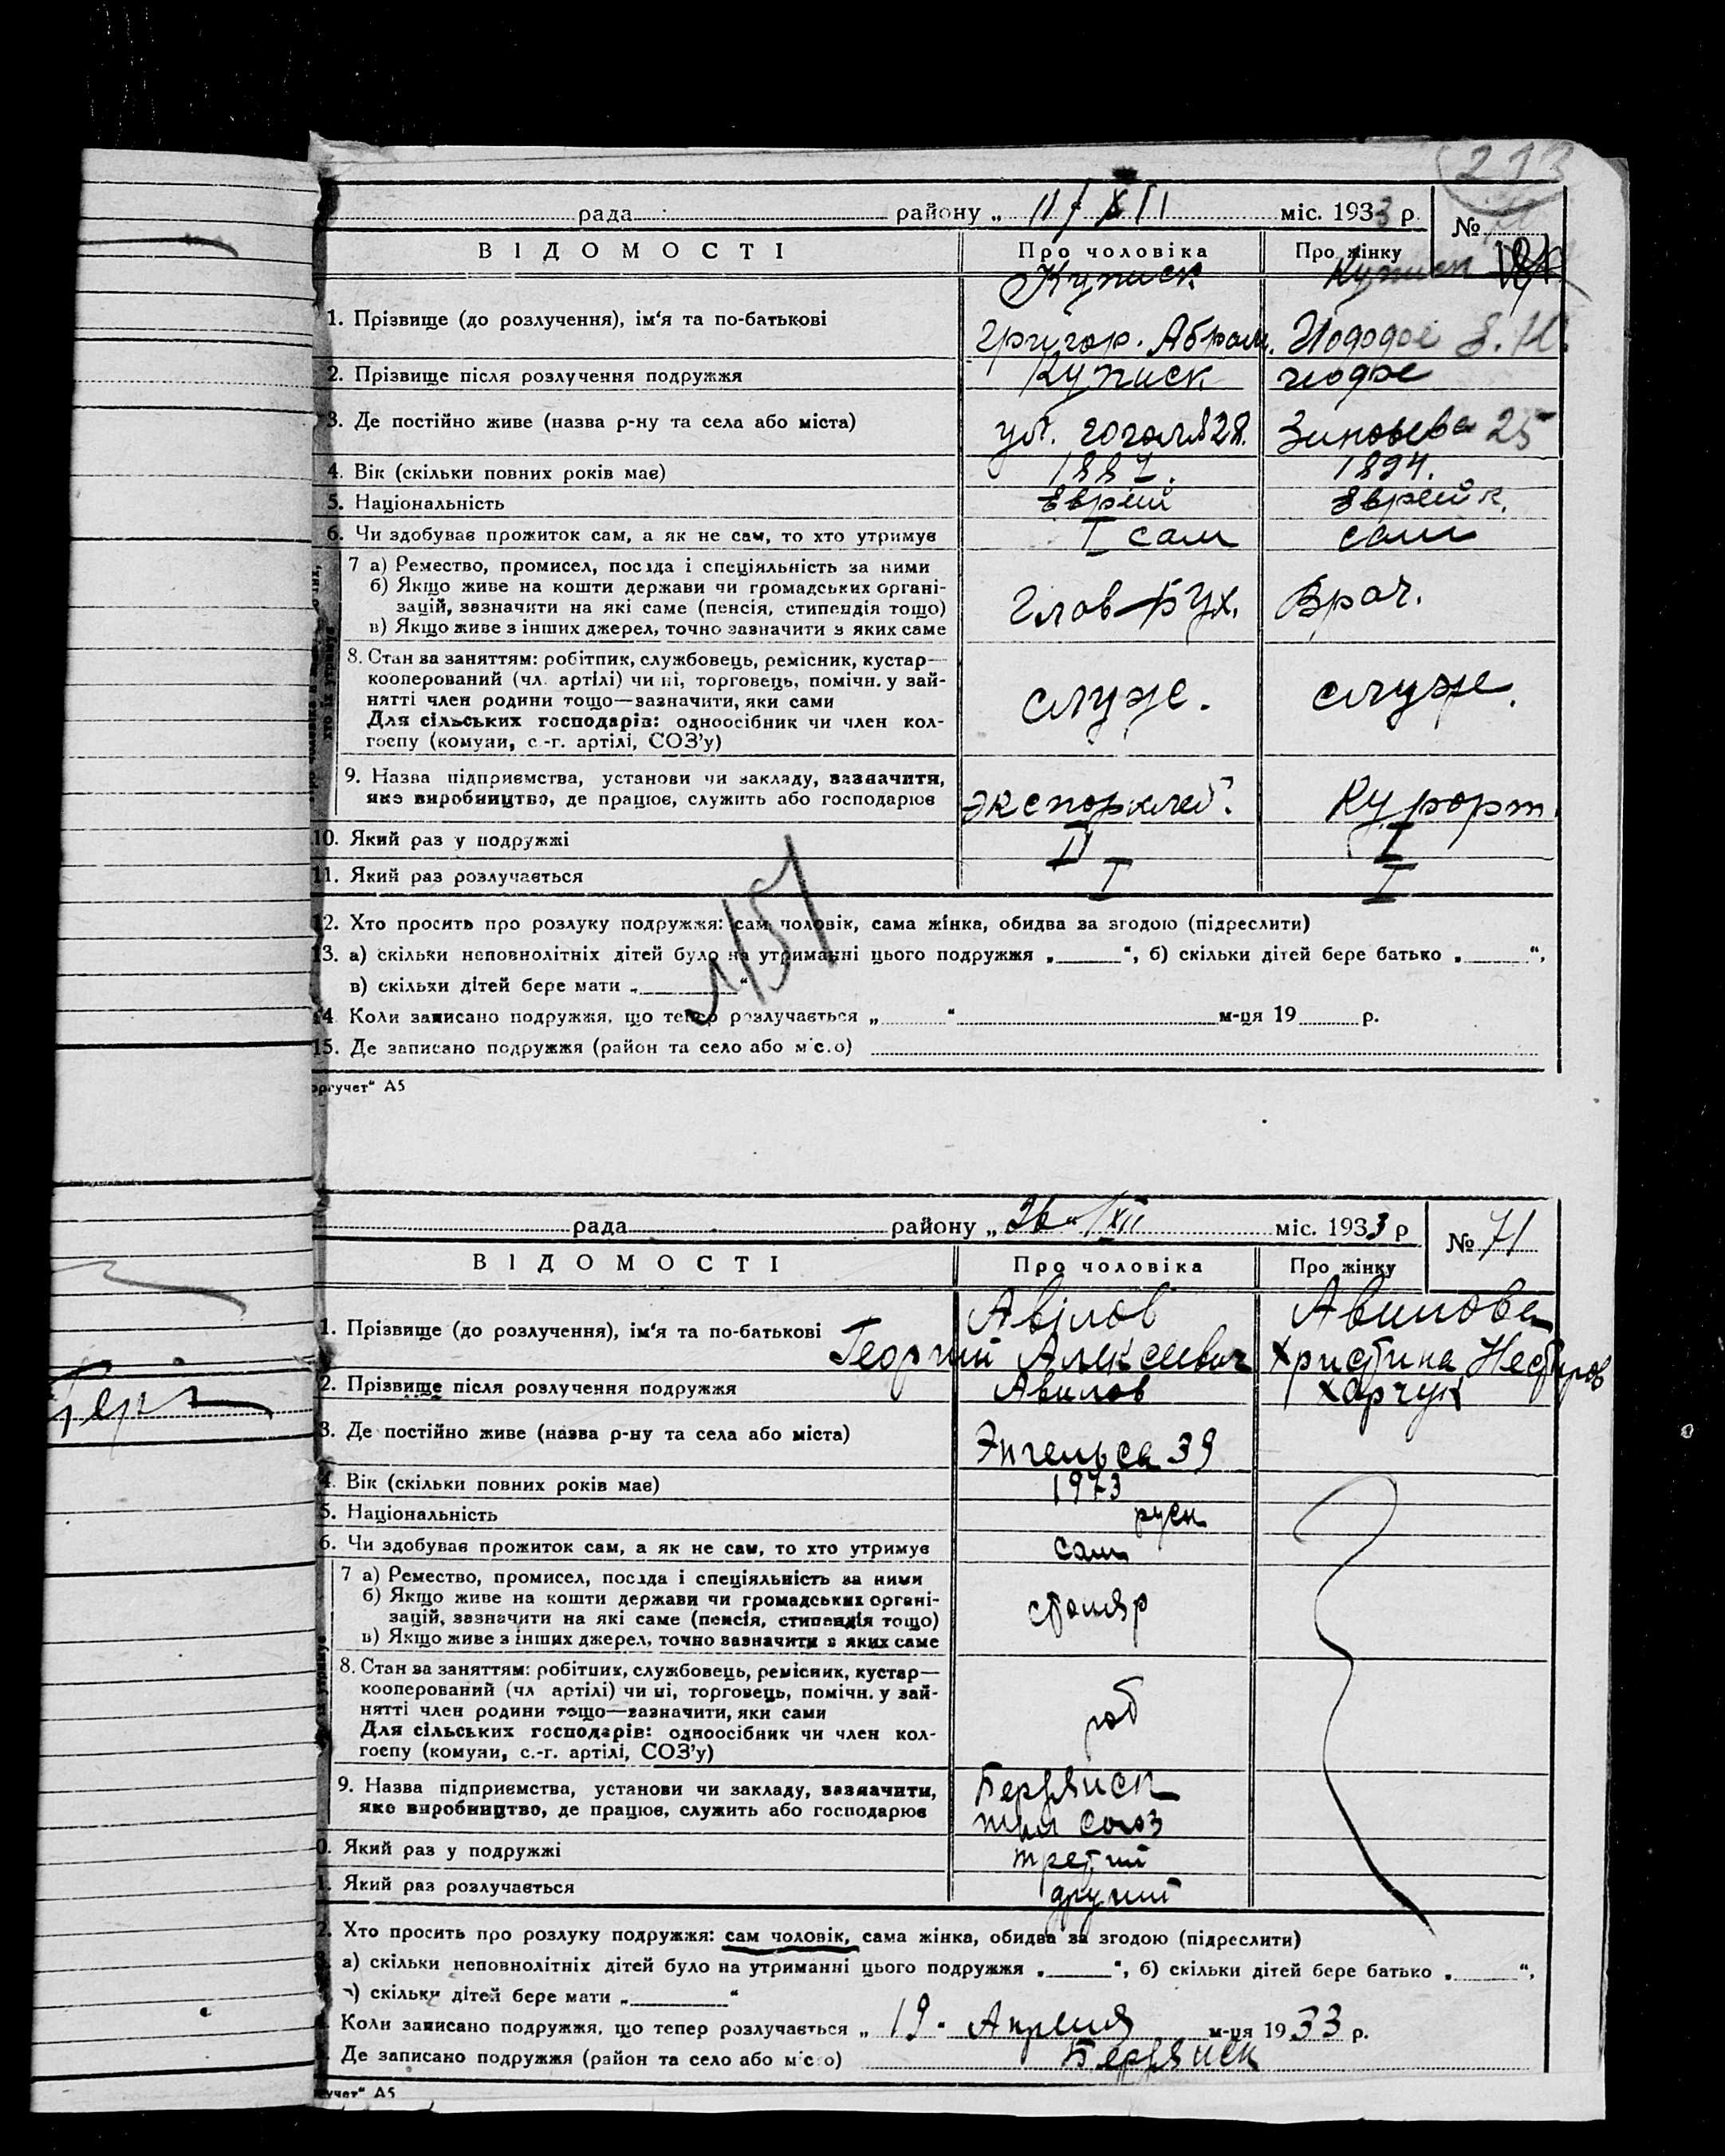 213
рада районु „ 11/XII міс. 1933 р. №
ВІДОМОСТІ Про чоловіка Про жінку
Куписк Куписк
1. Прізвище (до розлучення), ім'я та по-батькові
Григор. Абрам.
2. Прізвище після розлучення подружжя Куписк
3. Де постійно живе (назва р-ну та села або міста) ул. Гоголя 28. Зиновьева 25
4. Вік (скільки повних років має) 1887. 1894.
5. Національність Еврей Еврейк.
6. Чи здобуває прожиток сам, а як не сам, то хто утримує I сам сам
7 а) Ремество, промисел, посада і спеціяльність за ними
б) Якщо живе на кошти держави чи громадських органі-
зацій, зазначити на які саме (пенсія, стипендія тощо) Глав-Бух. Врач.
в) Якщо живе з інших джерел, точно зазначити з яких саме
8. Стан за заняттям: робітник, службовець, ремісник, кустар—
кооперований (чл. артілі) чи ні, торговець, помічн. у зай-
нятті член родини тощо—зазначити, яки сами служ. служ.
Для сільських господарів: одноосібник чи член кол-
госпу (комуни, с.-г. артілі, СОЗ'у)
9. Назва підприємства, установи чи закладу, зазначити,
яке виробництво, де працює, служить або господарює Курорт.
10. Який раз у подружжі II I
11. Який раз розлучається I I
12. Хто просить про розлуку подружжя: сам чоловік, сама жінка, обидва за згодою (підреслити)
13. а) скільки неповнолітніх дітей було на утриманні цього подружжя „ “, б) скільки дітей бере батько „ “,
в) скільки дітей бере мати „ “
14. Коли записано подружжя, що тепер розлучається „ “ м-ця 19 р.
15. Де записано подружжя (район та село або місто)
оргучет“ А5
рада району „ 26 “ XII міс. 1933 р № 71
ВІДОМОСТІ Про чоловіка Про жінку
Авілов Авилова
1. Прізвище (до розлучення), ім'я та по-батькові
Георгий Алексеевич Христина Нестиров
2. Прізвище після розлучення подружжя Авилов Харчук
3. Де постійно живе (назва р-ну та села або міста) Энгельса 39
4. Вік (скільки повних років має) 1973
5. Національність руск
6. Чи здобуває прожиток сам, а як не сам, то хто утримує сам
7 а) Ремество, промисел, посада і спеціяльність за ними
б) Якщо живе на кошти держави чи громадських органі-
зацій, зазначити на які саме (пенсія, стипендія тощо) столяр
в) Якщо живе з інших джерел, точно зазначити з яких саме
8. Стан за заняттям: робітник, службовець, ремісник, кустар—
кооперований (чл артілі) чи ні, торговець, помічн. у зай-
нятті член родини тощо—зазначити, яки сами роб
Для сільських господарів: одноосібник чи член кол-
госпу (комуни, с.-г. артілі, СОЗ'у)
9. Назва підприємства, установи чи закладу, зазначити, Бердянск
яке виробництво, де працює, служить або господарює союз
0. Який раз у подружжі третий
1. Який раз розлучається другий
2. Хто просить про розлуку подружжя: сам чоловік, сама жінка, обидва за згодою (підреслити)
а) скільки неповнолітніх дітей було на утриманні цього подружжя „ “, б) скільки дітей бере батько „ “,
в) скільки дітей бере мати „ “
Коли записано подружжя, що тепер розлучається „ 19. Апреля м-ця 1933 р.
Де записано подружжя (район та село або місто) Бердянск
учет“ А5